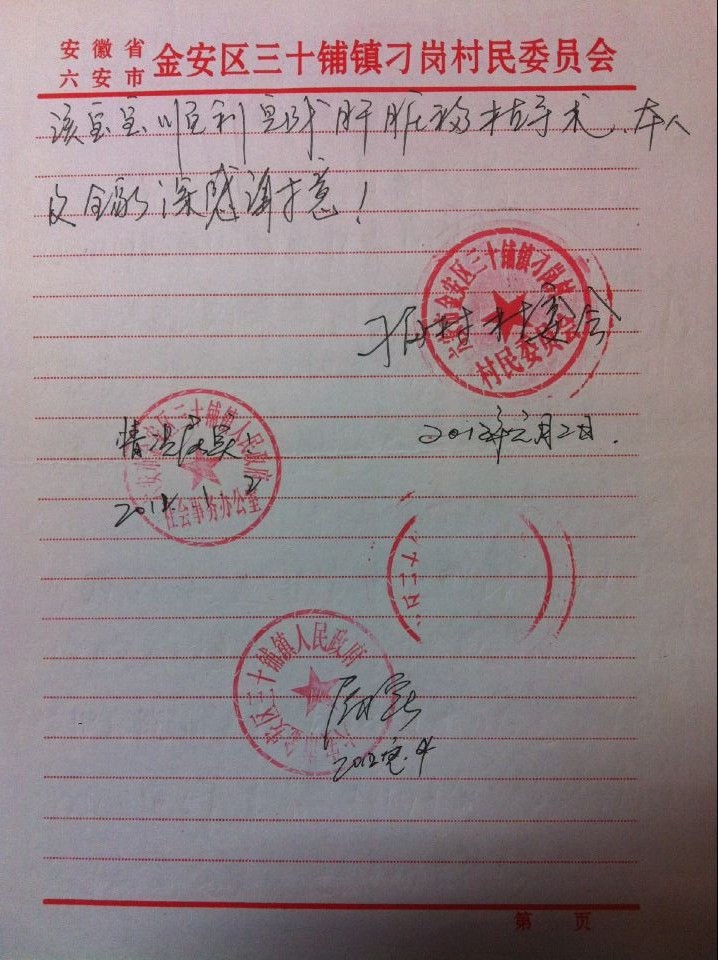 安徽省
六安市
金安区三十铺镇刁岗村民委员会
该宝宝顺利完成肝脏移植手术、本人
及全家深感谢意！
金安区三十铺镇刁岗村
村民委员会
刁岗村村委会
2012年元月2日.
情况属实!
2012. 1. 2
三十铺镇人民政府
社会事务办公室
安区三十铺镇人民政府
情况属实
2012.元.4
第 页